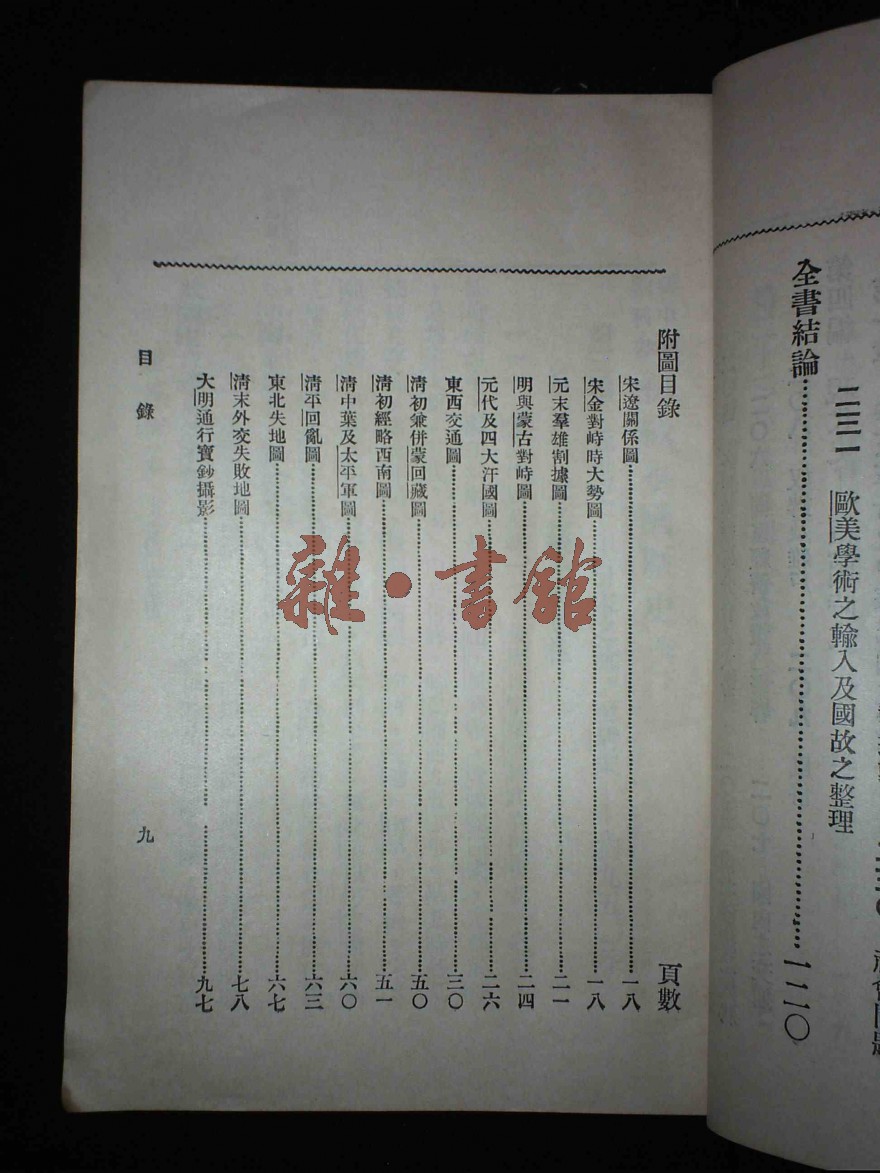 全書結論 一二〇
二三一 歐美學術之輸入及國故之整理
附圖目錄 頁數
宋遼關係圖 一八
宋金對峙時大勢圖 一八
元末羣雄割據圖 二一
明與蒙古對峙圖 二四
元代及四大汗國圖 二六
東西交通圖 三〇
清初兼併蒙回藏圖 五〇
清初經略西南圖 五一
清中葉及太平軍圖 六〇
清平回亂圖 六三
東北失地圖 六七
清末外交失敗地圖 七八
大明通行寶鈔攝影 九七
目錄 九
雜·書館